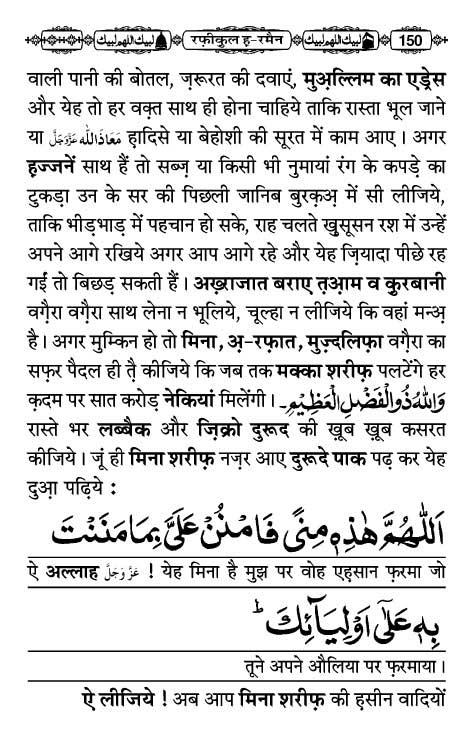 لبيك اللهم لبيك रफ़ीकुल ह-रमैन لبيك اللهم لبيك 150
वाली पानी की बोतल, ज़रूरत की दवाएं, मुअ़ल्लिम का एड्रेस
और येह तो हर वक़्त साथ ही होना चाहिये ताकि रास्ता भूल जाने
या مَعَاذَاللّٰه عَزَّوَجَلَّ ह़ादिसे या बेहोशी की सूरत में काम आए। अगर
इ़ज्जनें साथ हैं तो सब्ज़ या किसी भी नुमायां रंग के कपड़े का
टुकड़ा उन के सर की पिछली जानिब बुरक़अ़ में सी लीजिये,
ताकि भीड़भाड़ में पहचान हो सके, राह चलते ख़ुसूसन रश में उन्हें
अपने आगे रखिये अगर आप आगे रहे और येह ज़ियादा पीछे रह
गईं तो बिछड़ सकती हैं। अख़्राजात बराए त़आ़म व क़ुरबानी
वग़ैरा वग़ैरा साथ लेना न भूलिये, चूल्हा न लीजिये कि वहां मन्अ़
है। अगर मुम्किन हो तो मिना, अ़-रफ़ात, मुज़्दलिफ़ा वग़ैरा का
सफ़र पैदल ही त़ै कीजिये कि जब तक मक्का शरीफ़ पलटेंगे हर
क़दम पर सात करोड़ नेकियां मिलेंगी। وَاللّٰهُ ذُوالْفَضْلِ الْعَظِيْمِ۔
रास्ते भर लब्बैक और ज़िक्रो दुरूद की ख़ूब ख़ूब कसरत
कीजिये। जूं ही मिना शरीफ़ नज़र आए दुरूदे पाक पढ़ कर येह
दुआ़ पढ़िये :
اَللّٰهُمَّ هٰذِهٖ مِنًى فَامْنُنْ عَلَيَّ بِمَا مَنَنْتَ
ऐ अल्लाह عَزَّوَجَلَّ ! येह मिना है मुझ पर वोह एह़सान फ़रमा जो
بِهٖ عَلٰٓى اَوْلِيَآئِكَ ؕ
तूने अपने औलिया पर फ़रमाया।
ऐ लीजिये ! अब आप मिना शरीफ़ की ह़सीन वादियों